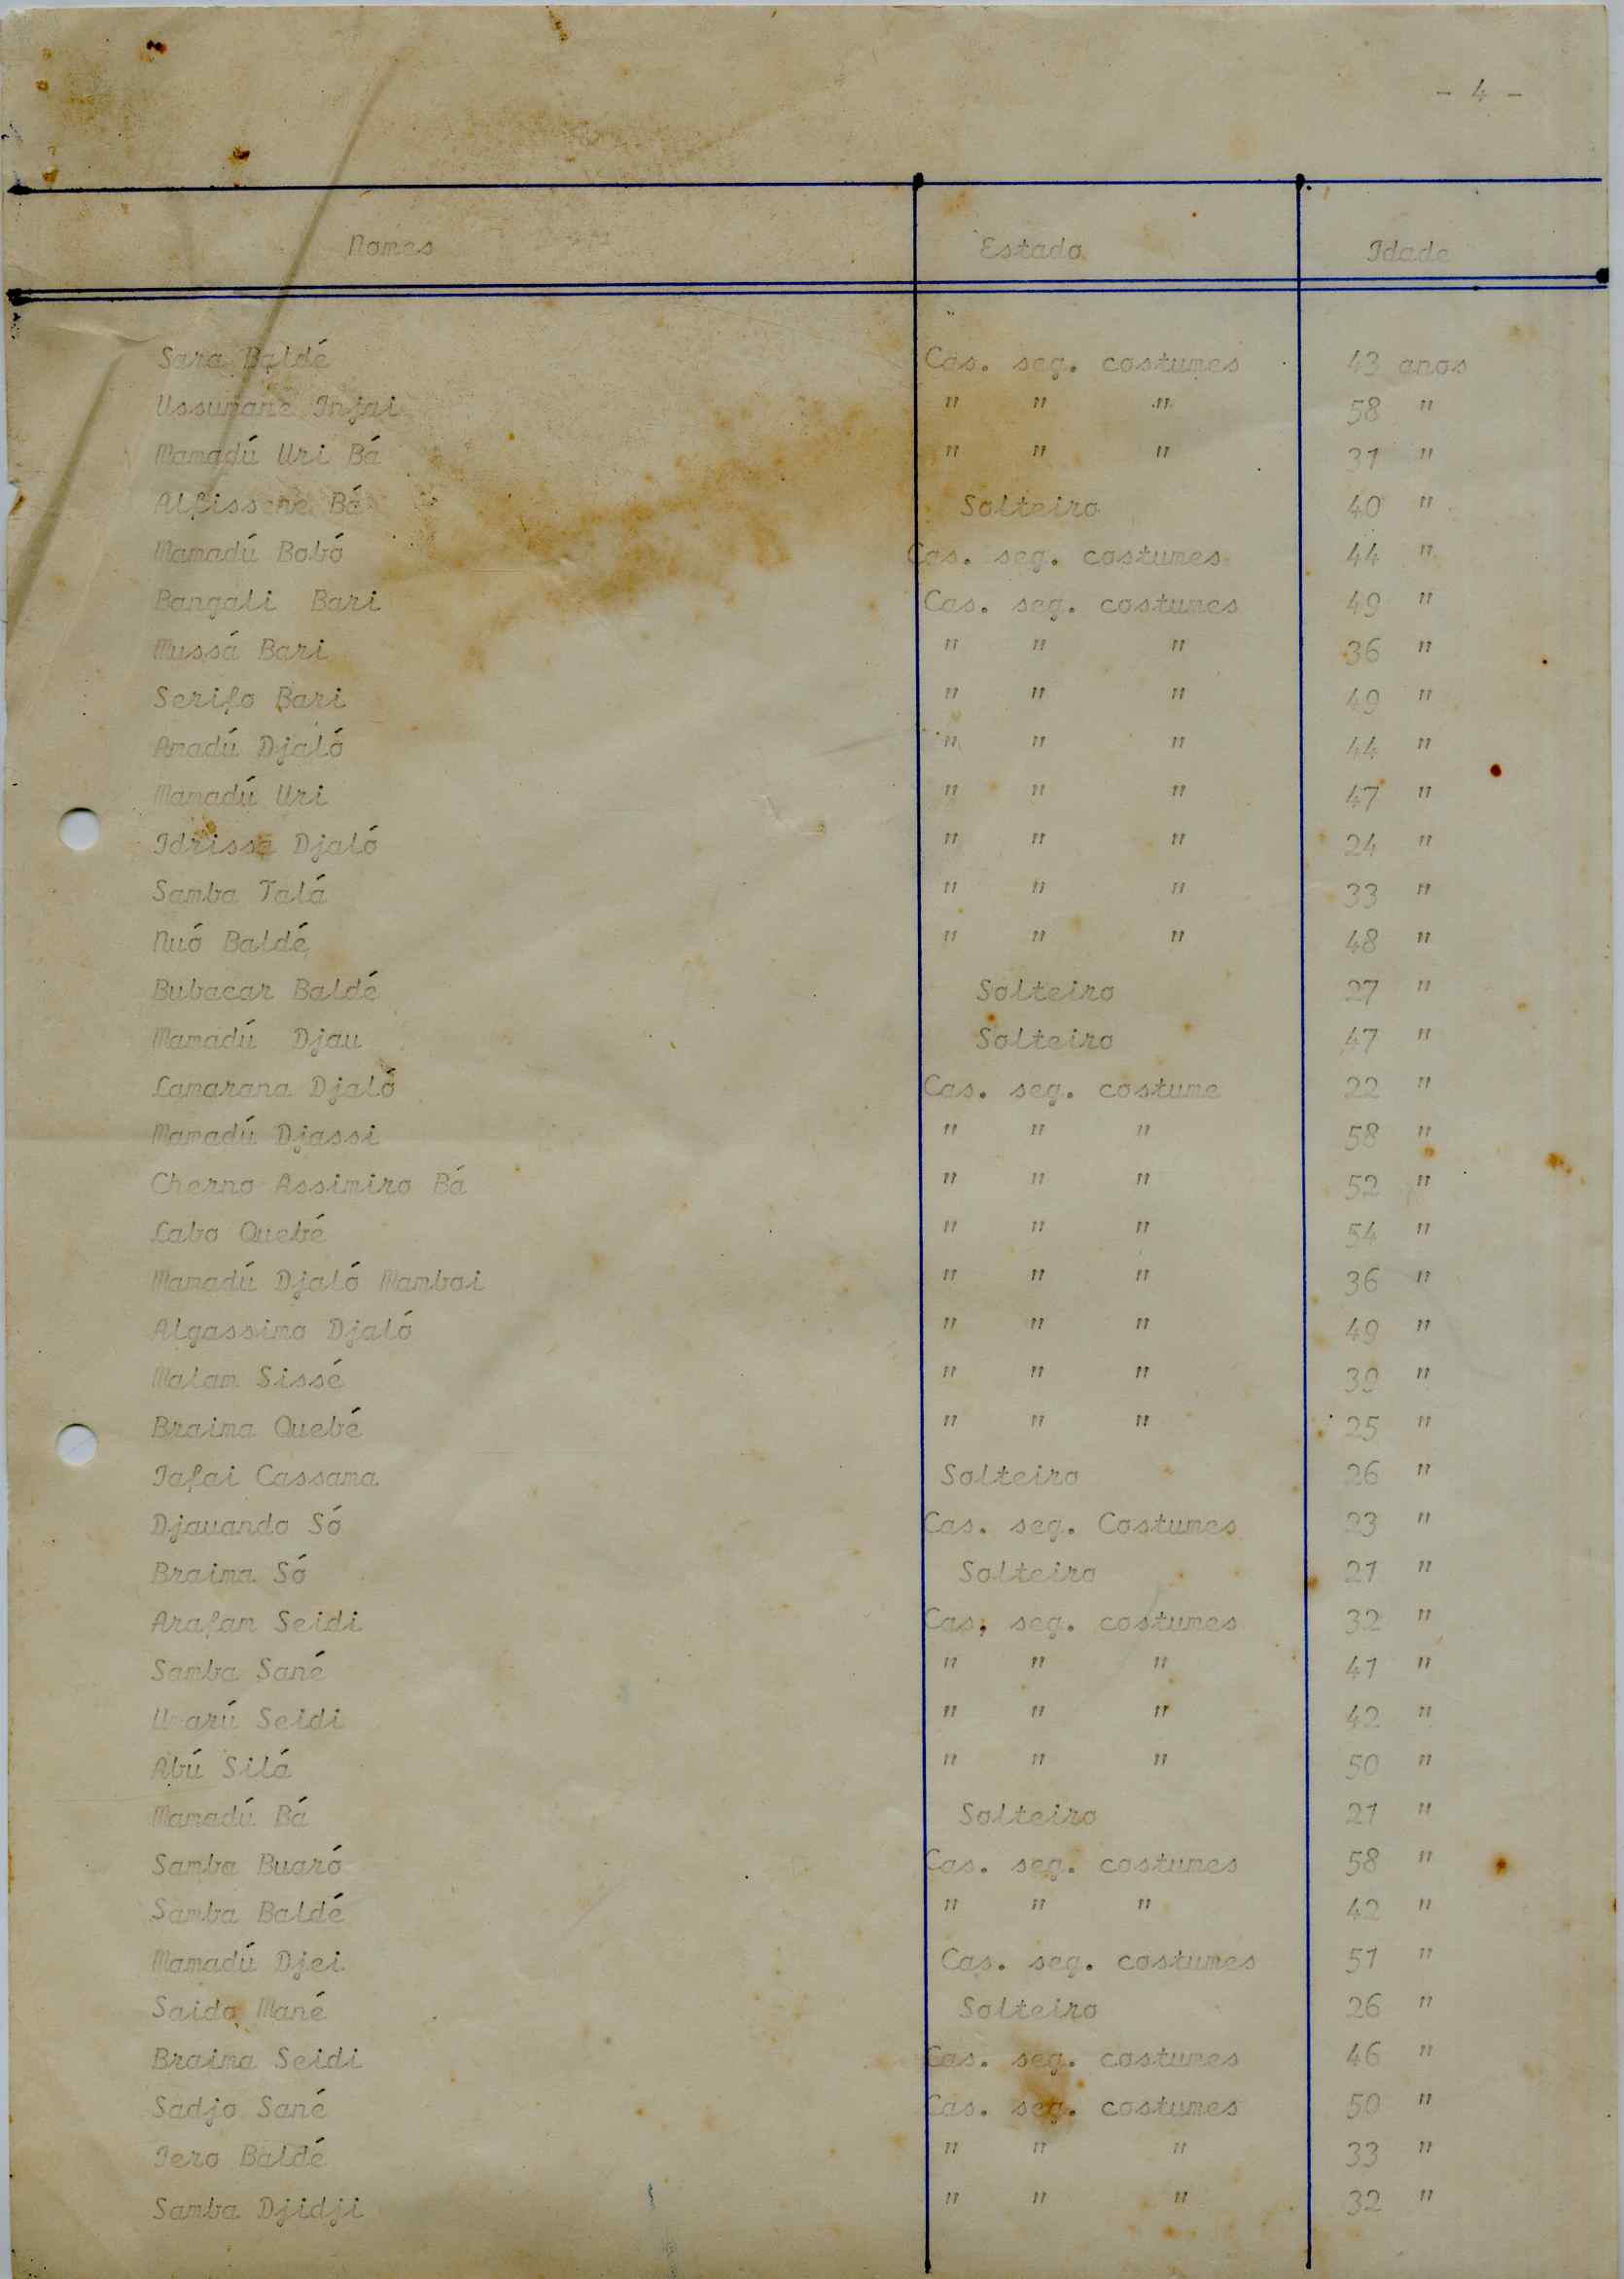 - 4 -
Nomes Estado Idade
Sara Baldé Cas. seg. costumes 43 anos
Ussumane Injai " " " 58 "
Mamadú Uri Bá " " " 31 "
Alfissene Bá Solteiro 40 "
Mamadú Bobó Cas. seg. costumes 44 "
Bangali Bari Cas. seg. costumes 49 "
Mussá Bari " " " 36 "
Serifo Bari " " " 49 "
Amadú Djaló " " " 44 "
Mamadú Uri " " " 47 "
Idrissa Djaló " " " 24 "
Samba Talá " " " 33 "
Nuó Baldé " " " 48 "
Bubacar Baldé Solteiro 27 "
Mamadú Djau Solteiro 47 "
Lamarana Djaló Cas. seg. costume 22 "
Mamadú Djassi " " " 58 "
Cherno Assimiro Bá " " " 52 "
Labo Quebé " " " 54 "
Mamadú Djaló Mamboi " " " 36 "
Algassimo Djaló " " " 49 "
Malam Sissé " " " 39 "
Braima Quebé " " " 25 "
Iafai Cassama Solteiro 26 "
Djauando Só Cas. seg. Costumes 23 "
Braima Só Solteiro 21 "
Arafam Seidi Cas. seg. costumes 32 "
Samba Sané " " " 41 "
U arú Seidi " " " 42 "
Abú Silá " " " 50 "
Mamadú Bá Solteiro 21 "
Samba Buaró Cas. seg. costumes 58 "
Samba Baldé " " " 42 "
Mamadú Djei Cas. seg. costumes 51 "
Saido Mané Solteiro 26 "
Braima Seidi Cas. seg. costumes 46 "
Sadjo Sané Cas. seg. costumes 50 "
Iero Baldé " " " 33 "
Samba Djidji " " " 32 "